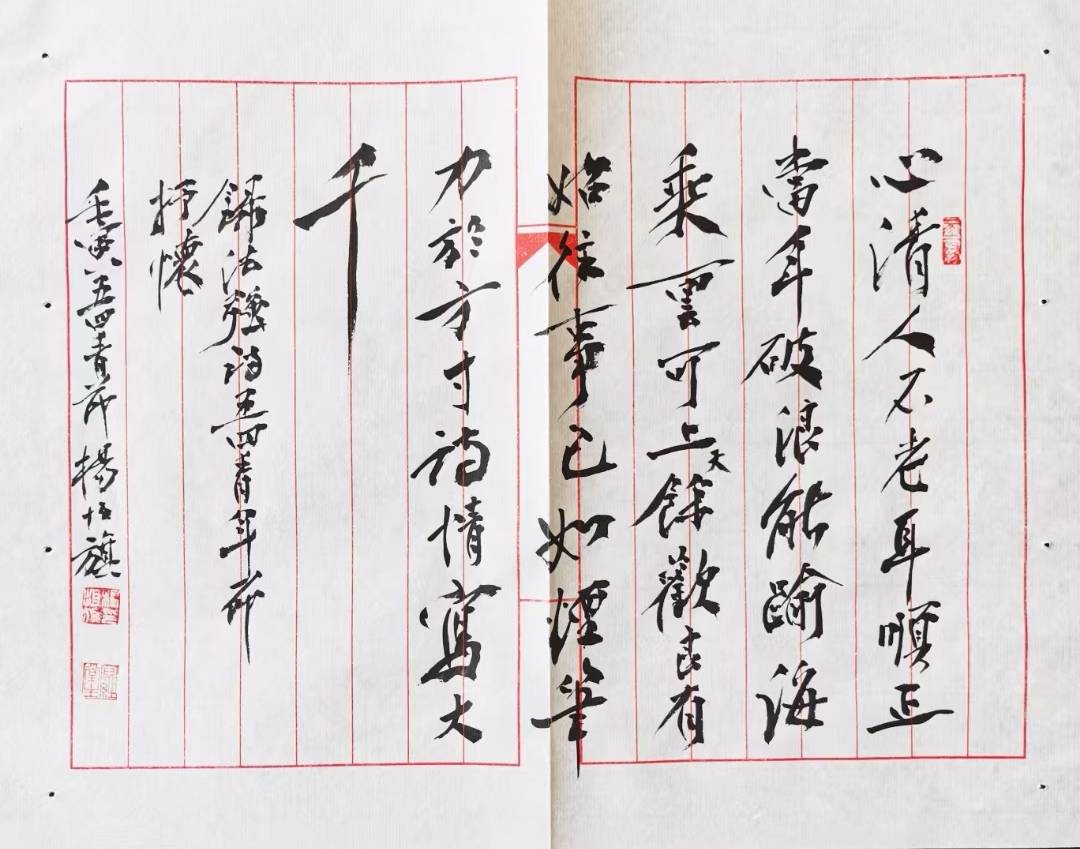 心清人不老耳順正
當年破浪能踰海
乘雲可上天餘歡良有
始往事已如煙筆
力於方寸詩情寫大
千
錄法強詩五四青年節
抒懷
壬寅五四青節楊旗